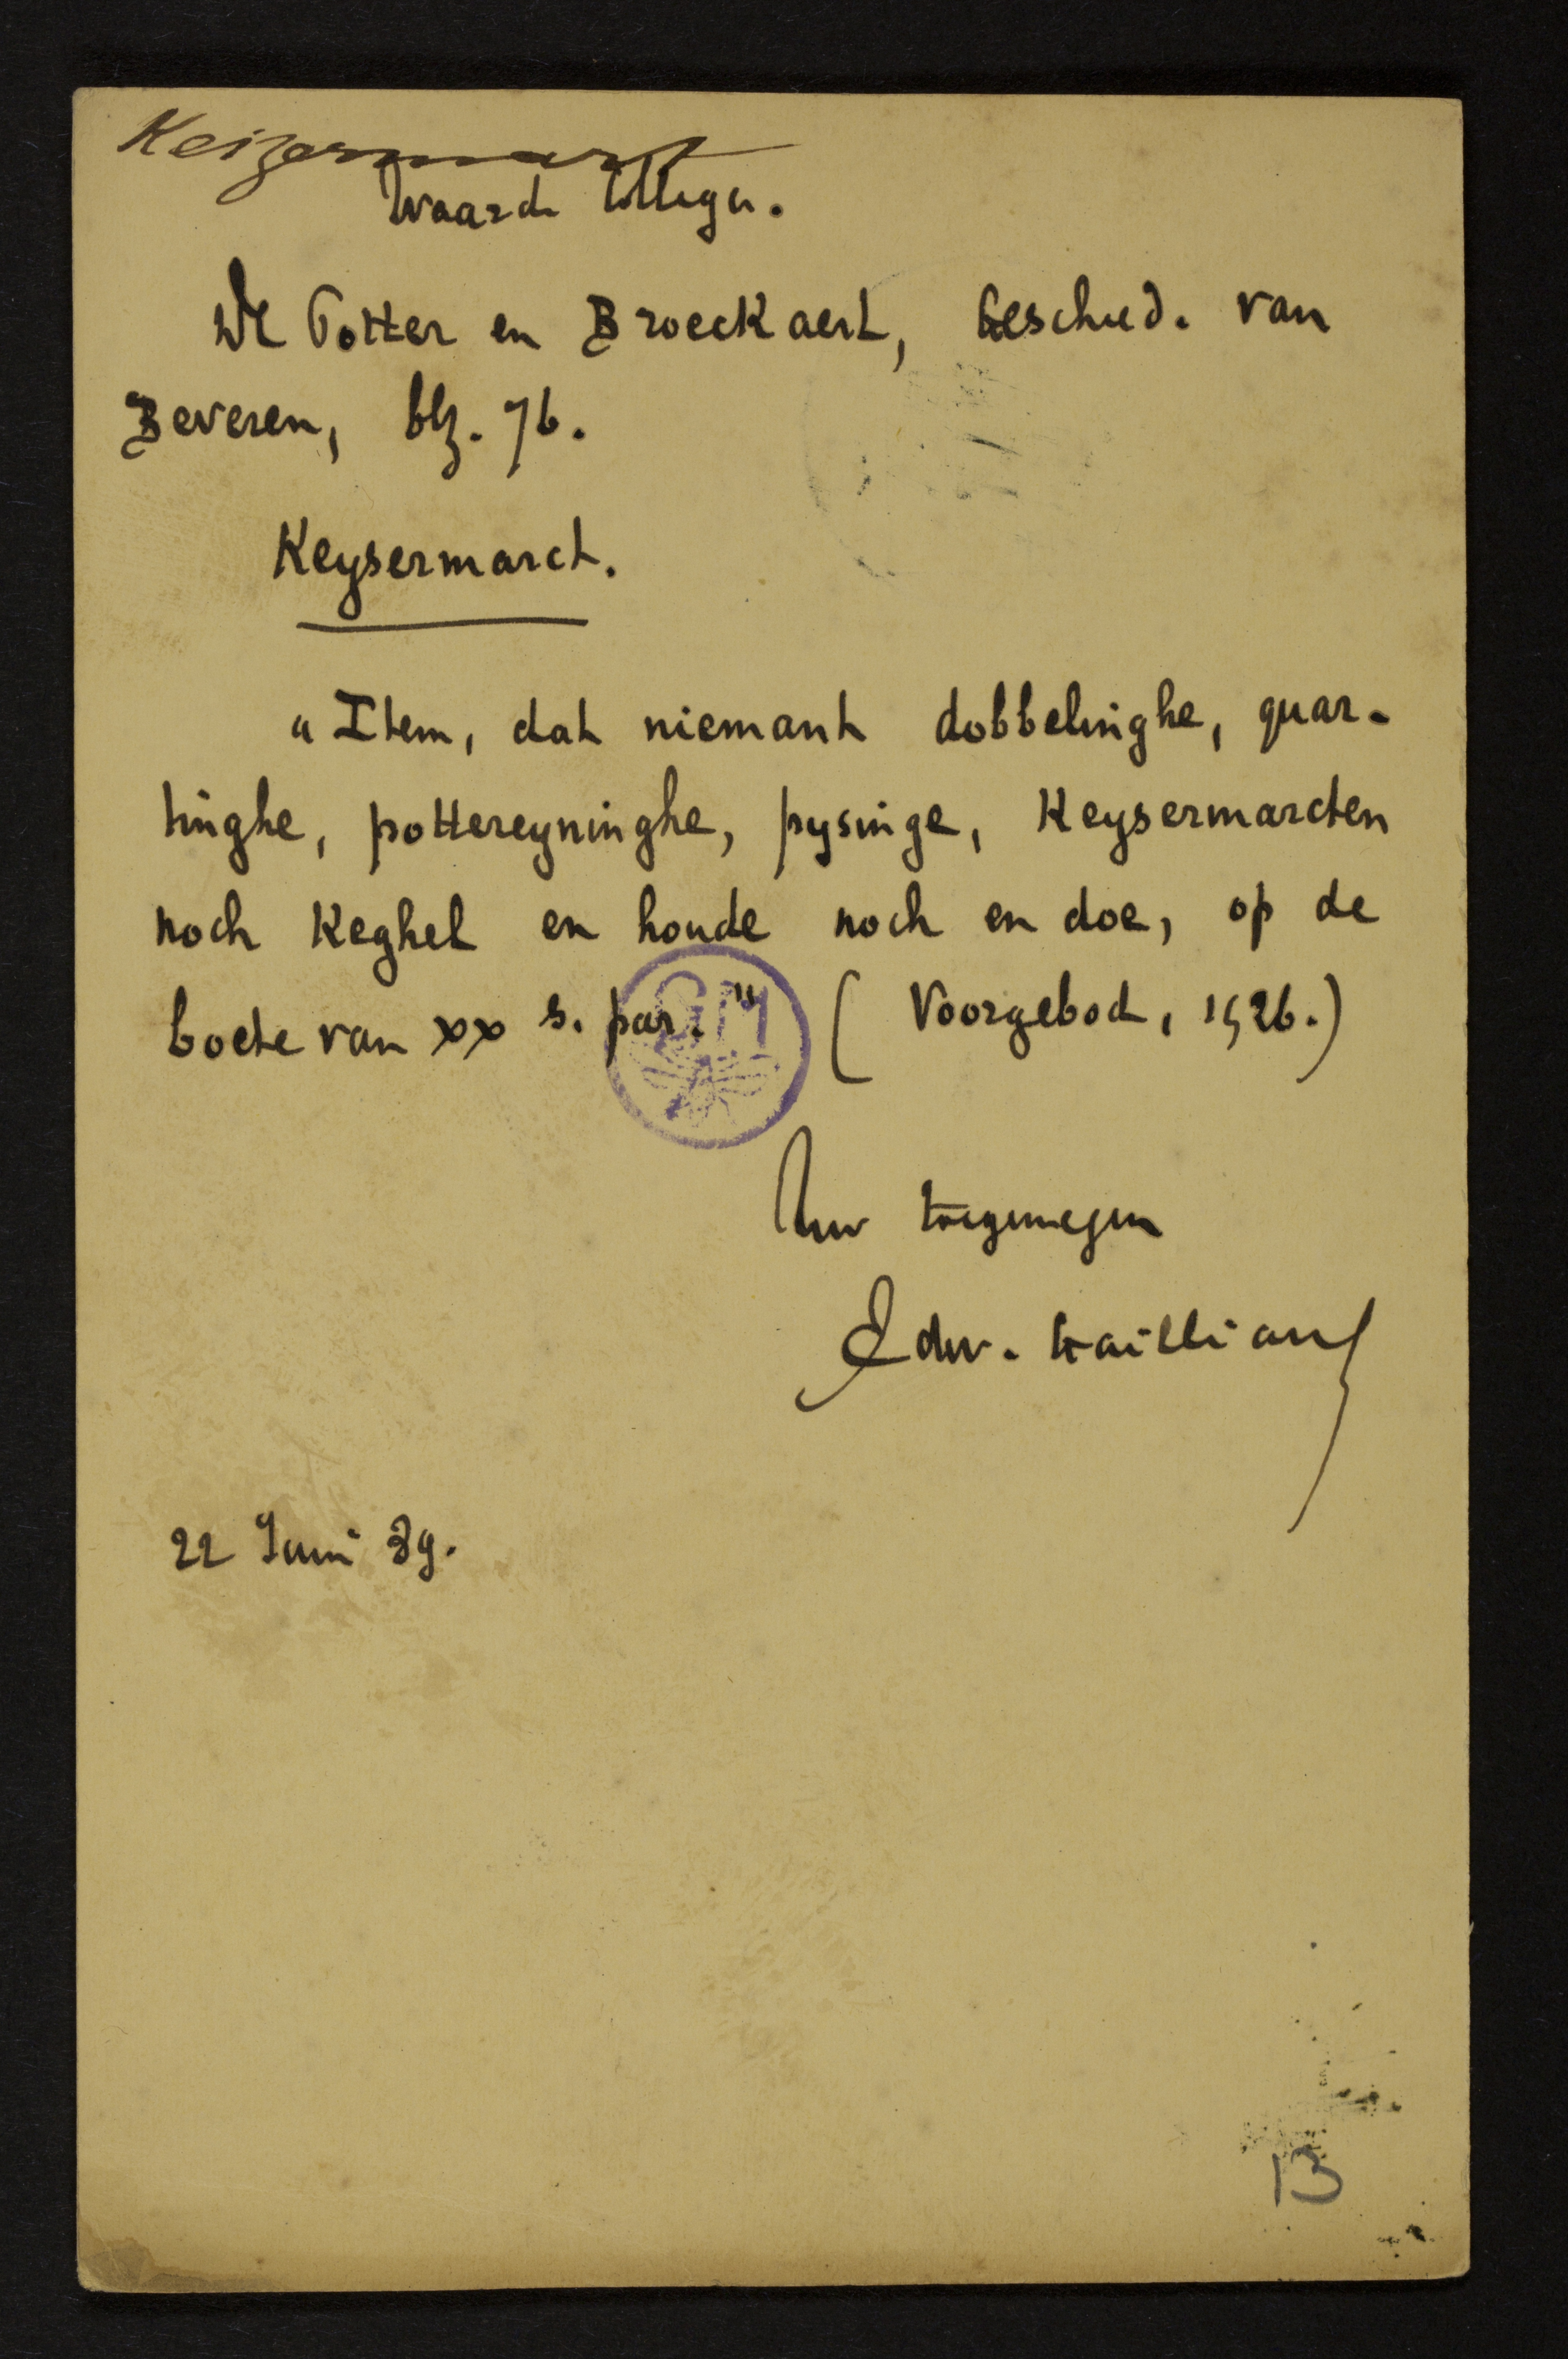 Keizermart
Waarde Collega.
De Potter en Broeckaert, Geschied. van
Beveren, blz. 76.
Keysermarct.
"Item, dat niemant dobbelinghe, quar-
tinghe, pottereyninghe, pysinge, Keysermarcten
noch Keghel en houde noch en doe, op de
boete van xx s. par." (Voorgebod, 1526.)
GM
Uw toegenegen
Edw. Gailliard
22 Juni 89.
13